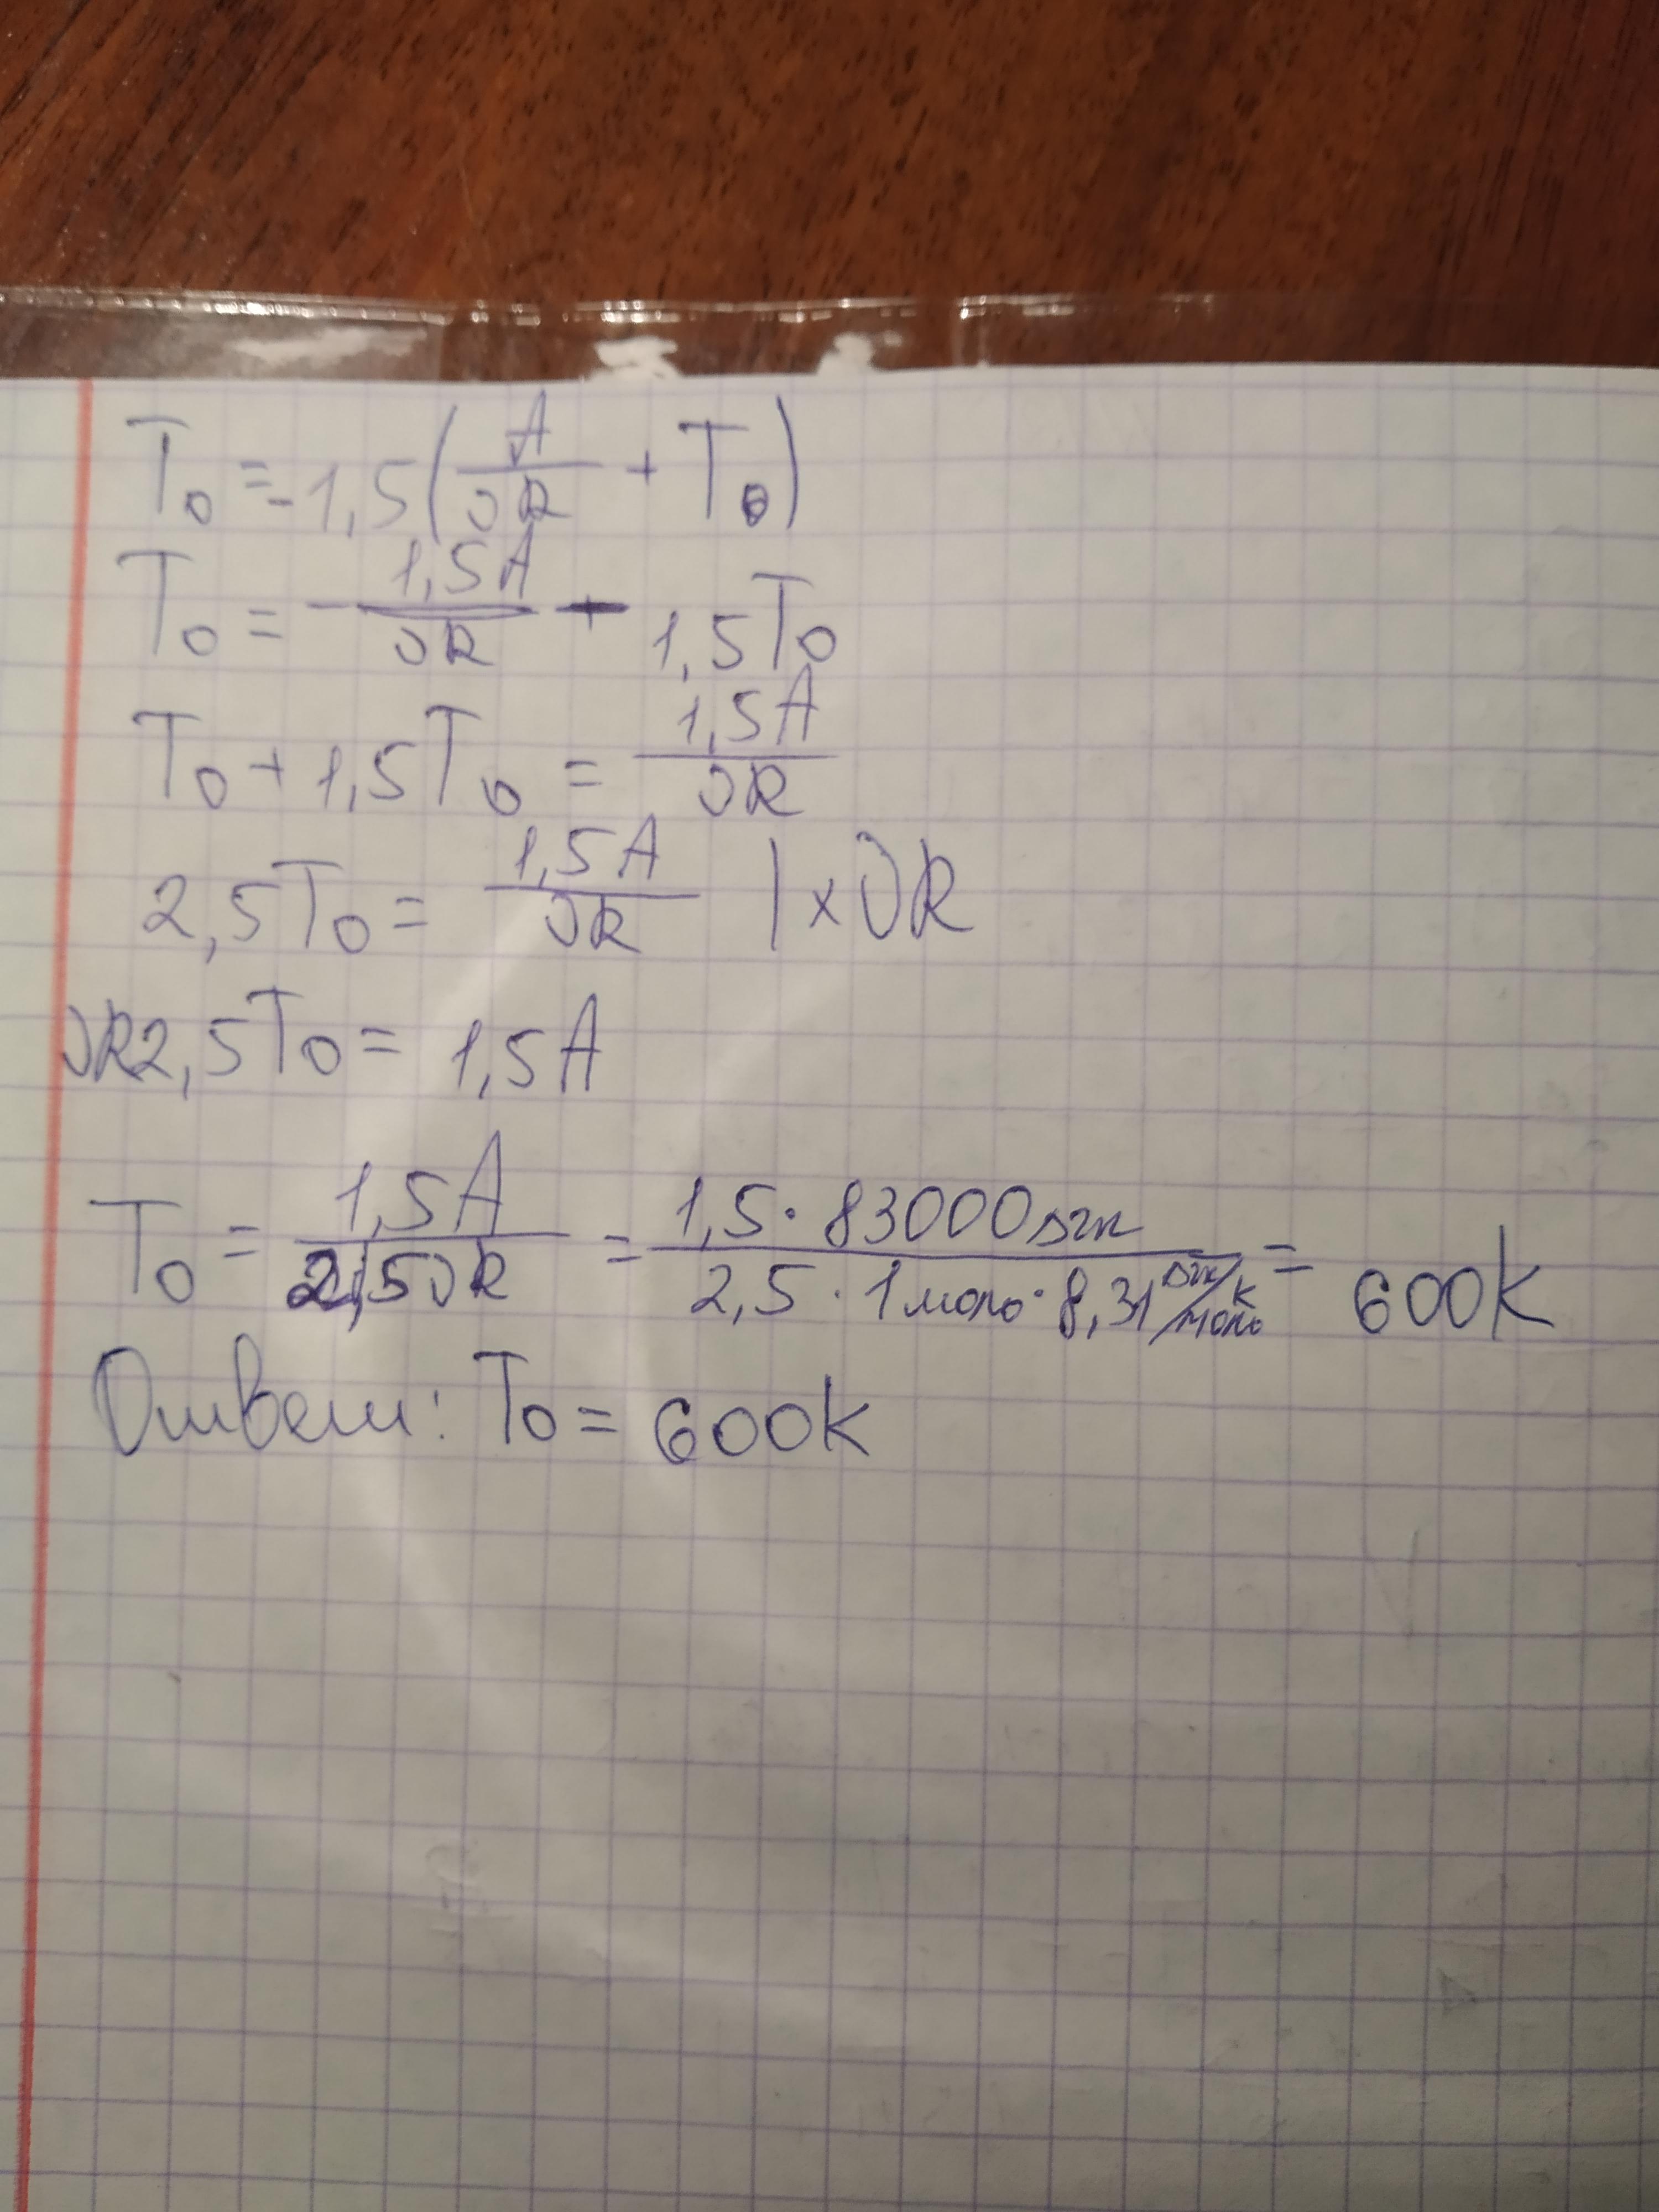 T₀ = -1,5(A/νR + T₀)
T₀ = - 1,5A/νR - 1,5T₀
T₀ + 1,5T₀ = 1,5A/νR
2,5T₀ = 1,5A/νR | × νR
νR2,5T₀ = 1,5A
T₀ = 1,5A/2,5νR = 1,5 · 83000дж/2,5 · 1моль · 8,31 дж/к/моль = 600К
Ответ: T₀ = 600К